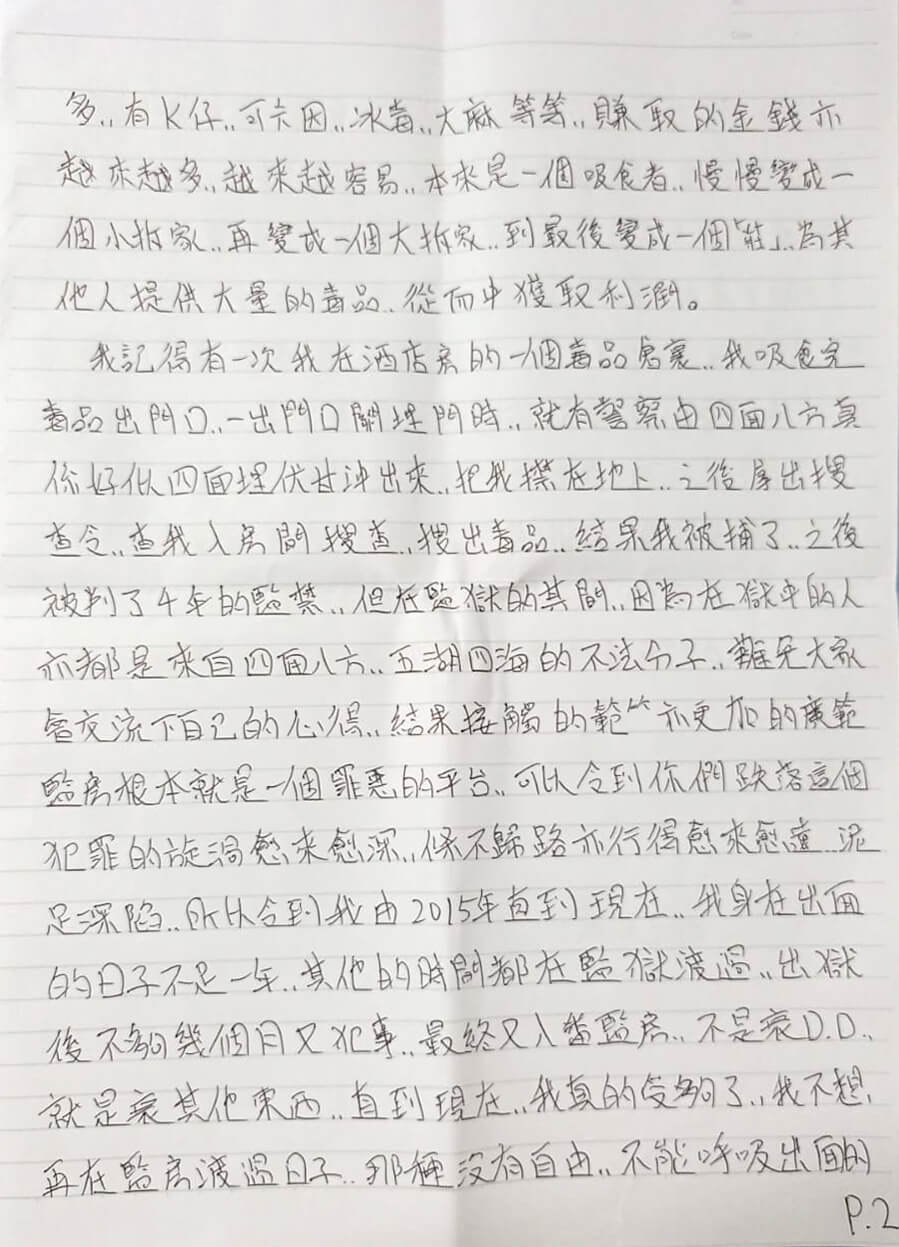 多,,有K仔,,可卡因,,冰毒,,大麻等等,,賺取的金錢亦
越來越多,,越來越容易,,本來是一個吸食者,,慢慢變成一
個小拆家,,再變成一個大拆家,,到最後變成一個「莊」,,為其
他人提供大量的毒品,,從而中獲取利潤。
我記得有一次我在酒店房的一個毒品窩裏,,我吸食完
毒品出門口,,一出門口關埋門時,,就有警察由四面八方真
係好似四面埋伏甘沖出來,,把我㩒在地上,,之後 出搜
查令,,查我入房間搜查,,搜出毒品,,結果我被捕了,,之後
被判了4年的監禁,,但在監獄的其間,,因為在獄中的人
亦都是來自四面八方,,五湖四海的不法分子,,難免大家
會交流下自己的心得,,結果接觸的範 亦更加的廣範
監房根本就是一個罪惡的平台,,可以令到你們跌落這個
犯罪的旋渦愈來愈深,,條不歸路亦行得愈來愈遠,,泥
足深陷,,所以令到我由2015年直到現在,,我身在出面
的日子不足一年,,其他的時間都在監獄渡過,,出獄
後不夠幾個月又犯事,,最終又入番監房,,不是衰D.D,,
就是衰其他東西,,直到現在,,我真的受夠了,,我不想,
再在監房渡過日子,,那種沒有自由,,不能呼吸出面的
P.2